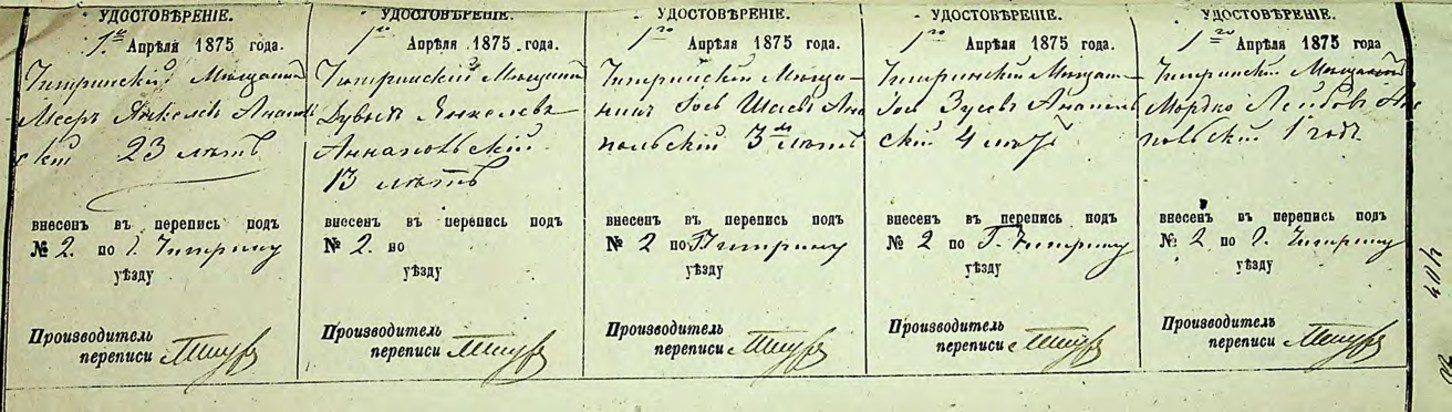 УДОСТОВѢРЕНІЕ.
1го Апрѣля 1875 года.
Чигринскій Мѣщанинъ
Мееръ Янкелевъ Анаполь
скій 23 лѣтъ
внесенъ въ перепись подъ
№ 2. по г. Чигрину
уѣзду
Производитель
переписи
УДОСТОВѢРЕНІЕ.
1го Апрѣля 1875 года.
Чигринскій Мѣщанинъ
Янкелевъ
Аннапольскій
13 лѣтъ
внесенъ въ перепись подъ
№ 2. по
уѣзду
Производитель
переписи
УДОСТОВѢРЕНІЕ.
1го Апрѣля 1875 года.
Чигринскій Мѣща-
нинъ Іосъ Шаевъ Ана
польскій 3 лѣтъ
внесенъ въ перепись подъ
№ 2 по Г. Чигрину
уѣзду
Производитель
переписи
УДОСТОВѢРЕНІЕ.
1го Апрѣля 1875 года.
Чигринскій Мѣщан
Іос Зусевъ Анаполь
скій 4 лѣтъ
внесенъ въ перепись подъ
№ 2 по Г. Чигрину
уѣзду
Производитель
переписи
УДОСТОВѢРЕНІЕ.
1го Апрѣля 1875 года
Чигринскій Мѣщанинъ
Мордко Лейбовъ Ана
польскій 1 годъ
внесенъ въ перепись подъ
№ 2 по г. Чигрину
уѣзду
Производитель
переписи